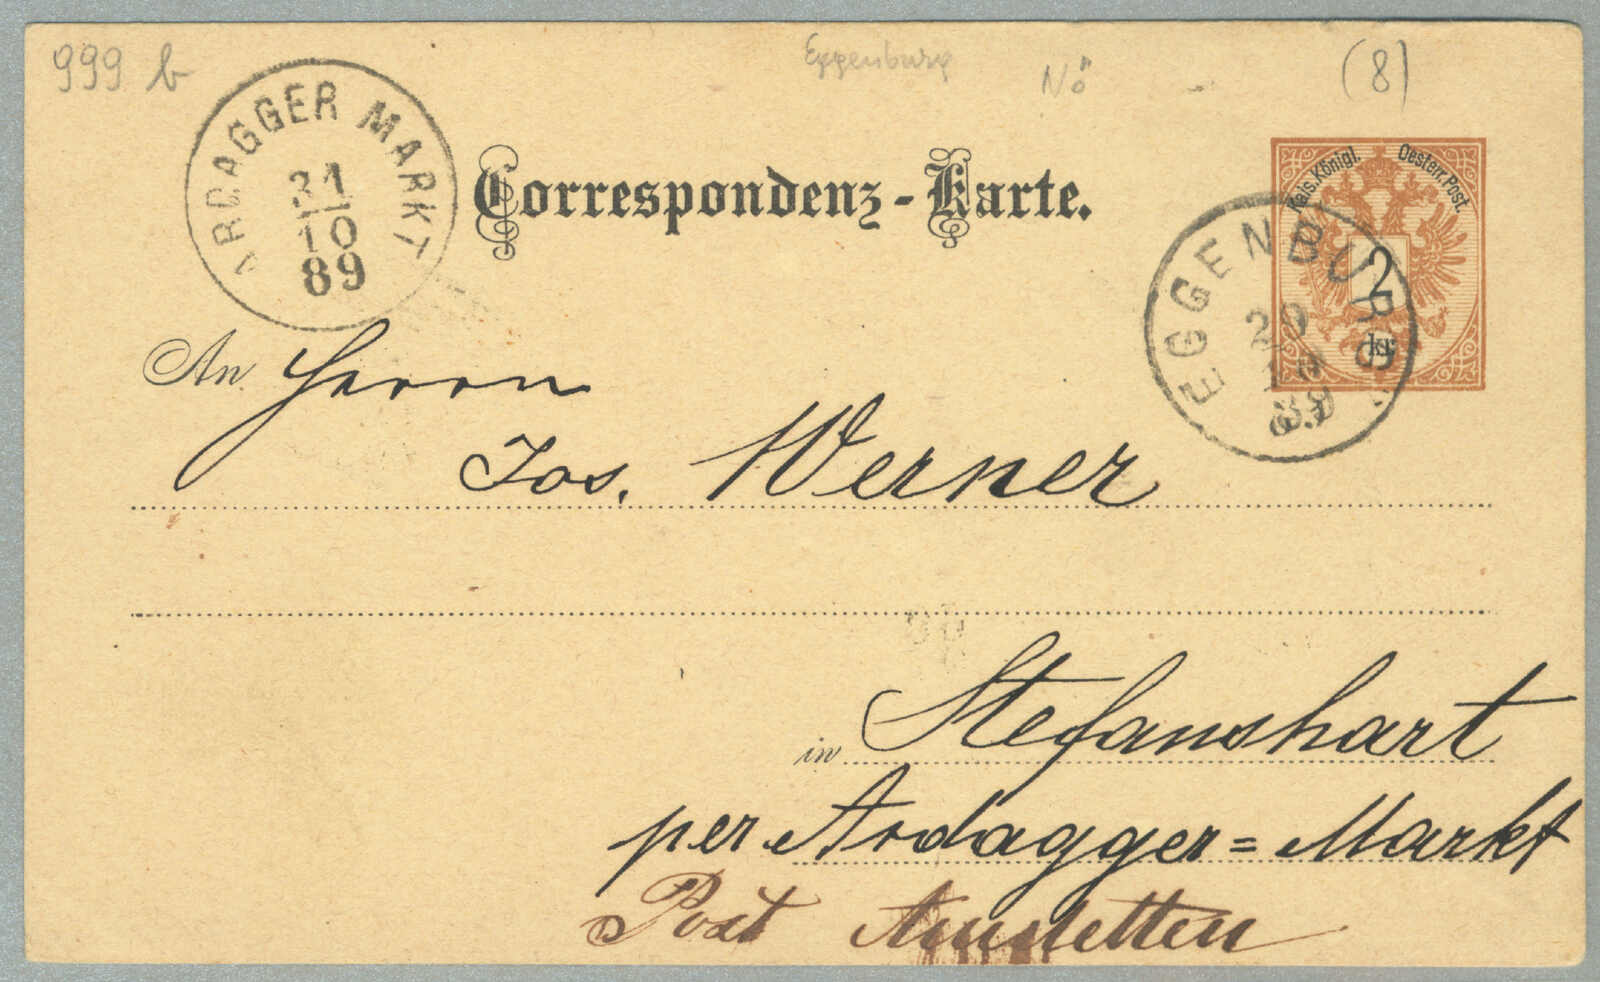 999 b
Eggenburg
NÖ
(8)
ARDAGGER MARKT
31
10
89
Correspondenz-Karte.
Kais. Königl. Oesterr. Post.
2
kr
EGGENBURG
10
89
An Herrn
Jos. Werner
in Stefanshart
per Ardagger=Markt
Post Amstetten